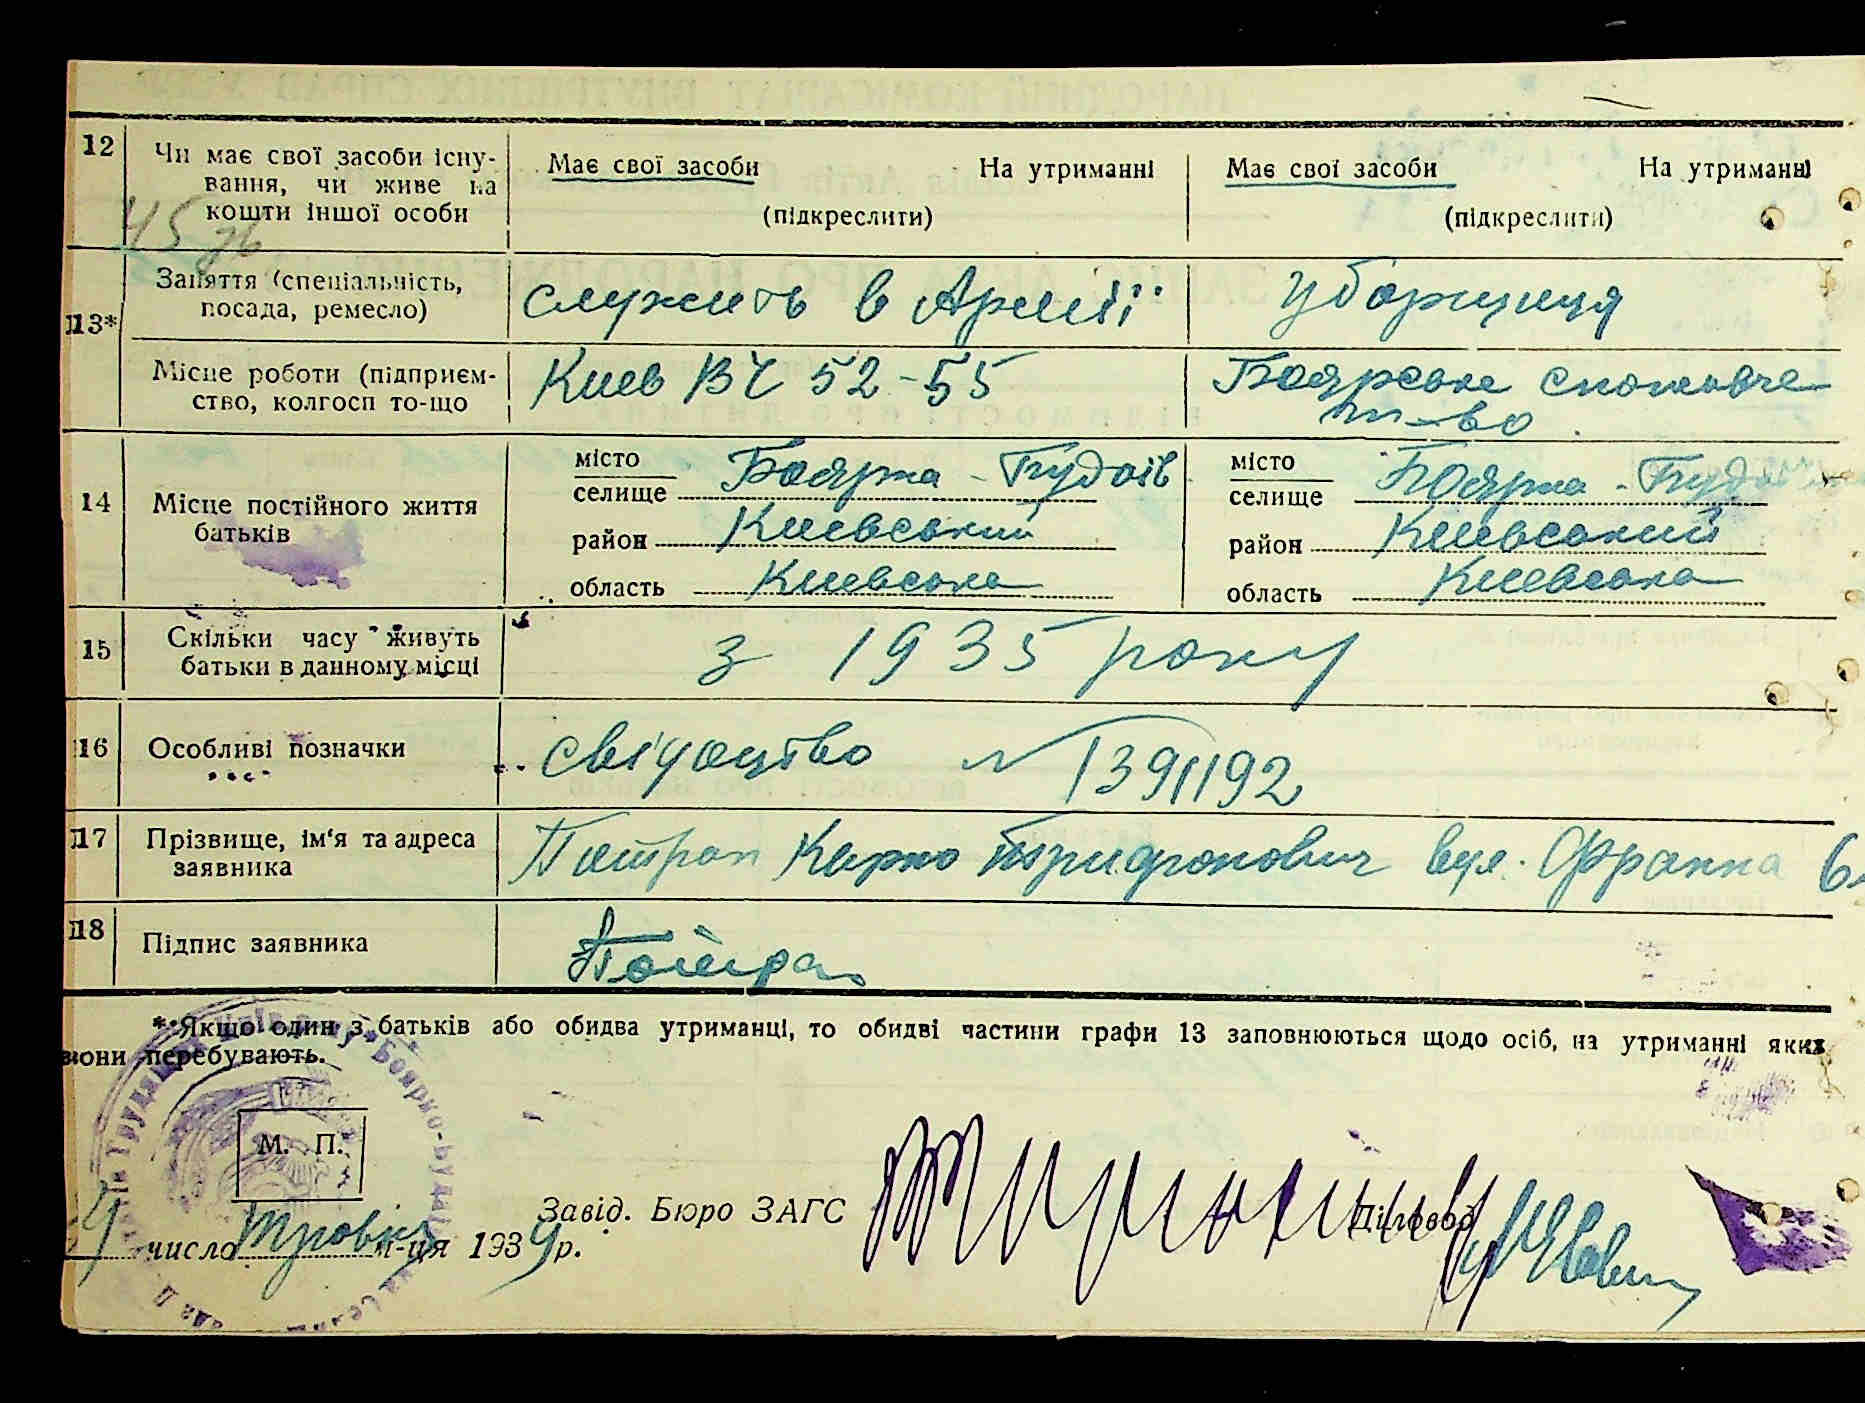 12
Чи має свої засоби існу-
вання, чи живе на
кошти іншої особи
Має свої засоби На утриманні
(підкреслити)
Має свої засоби На утриманні
(підкреслити)
45
13*
Заняття (спеціальність,
посада, ремесло)
служить в Армії
уборщиця
Місце роботи (підприєм-
ство, колгосп то-що
Киев ВЧ 52-55
Боярське споживче
т-во
14
Місце постійного життя
батьків
місто
селище Боярка - Будаів
район Киевський
область Киевська
місто
селище Боярка - Будаів
район Киевський
область Киевська
15
Скільки часу живуть
батьки в данному місці
з 1935 року
16
Особливі позначки
свідоцтво № 1391192
17
Прізвище, ім'я та адреса
заявника
Карпо Трифонович вул. Франка
18
Підпис заявника
* Якщо один з батьків або обидва утриманці, то обидві частини графи 13 заповнюються щодо осіб, на утриманні яких
вони перебувають.
М. П.
Завід. Бюро ЗАГС
Діловод
число м-ця 1939 р.